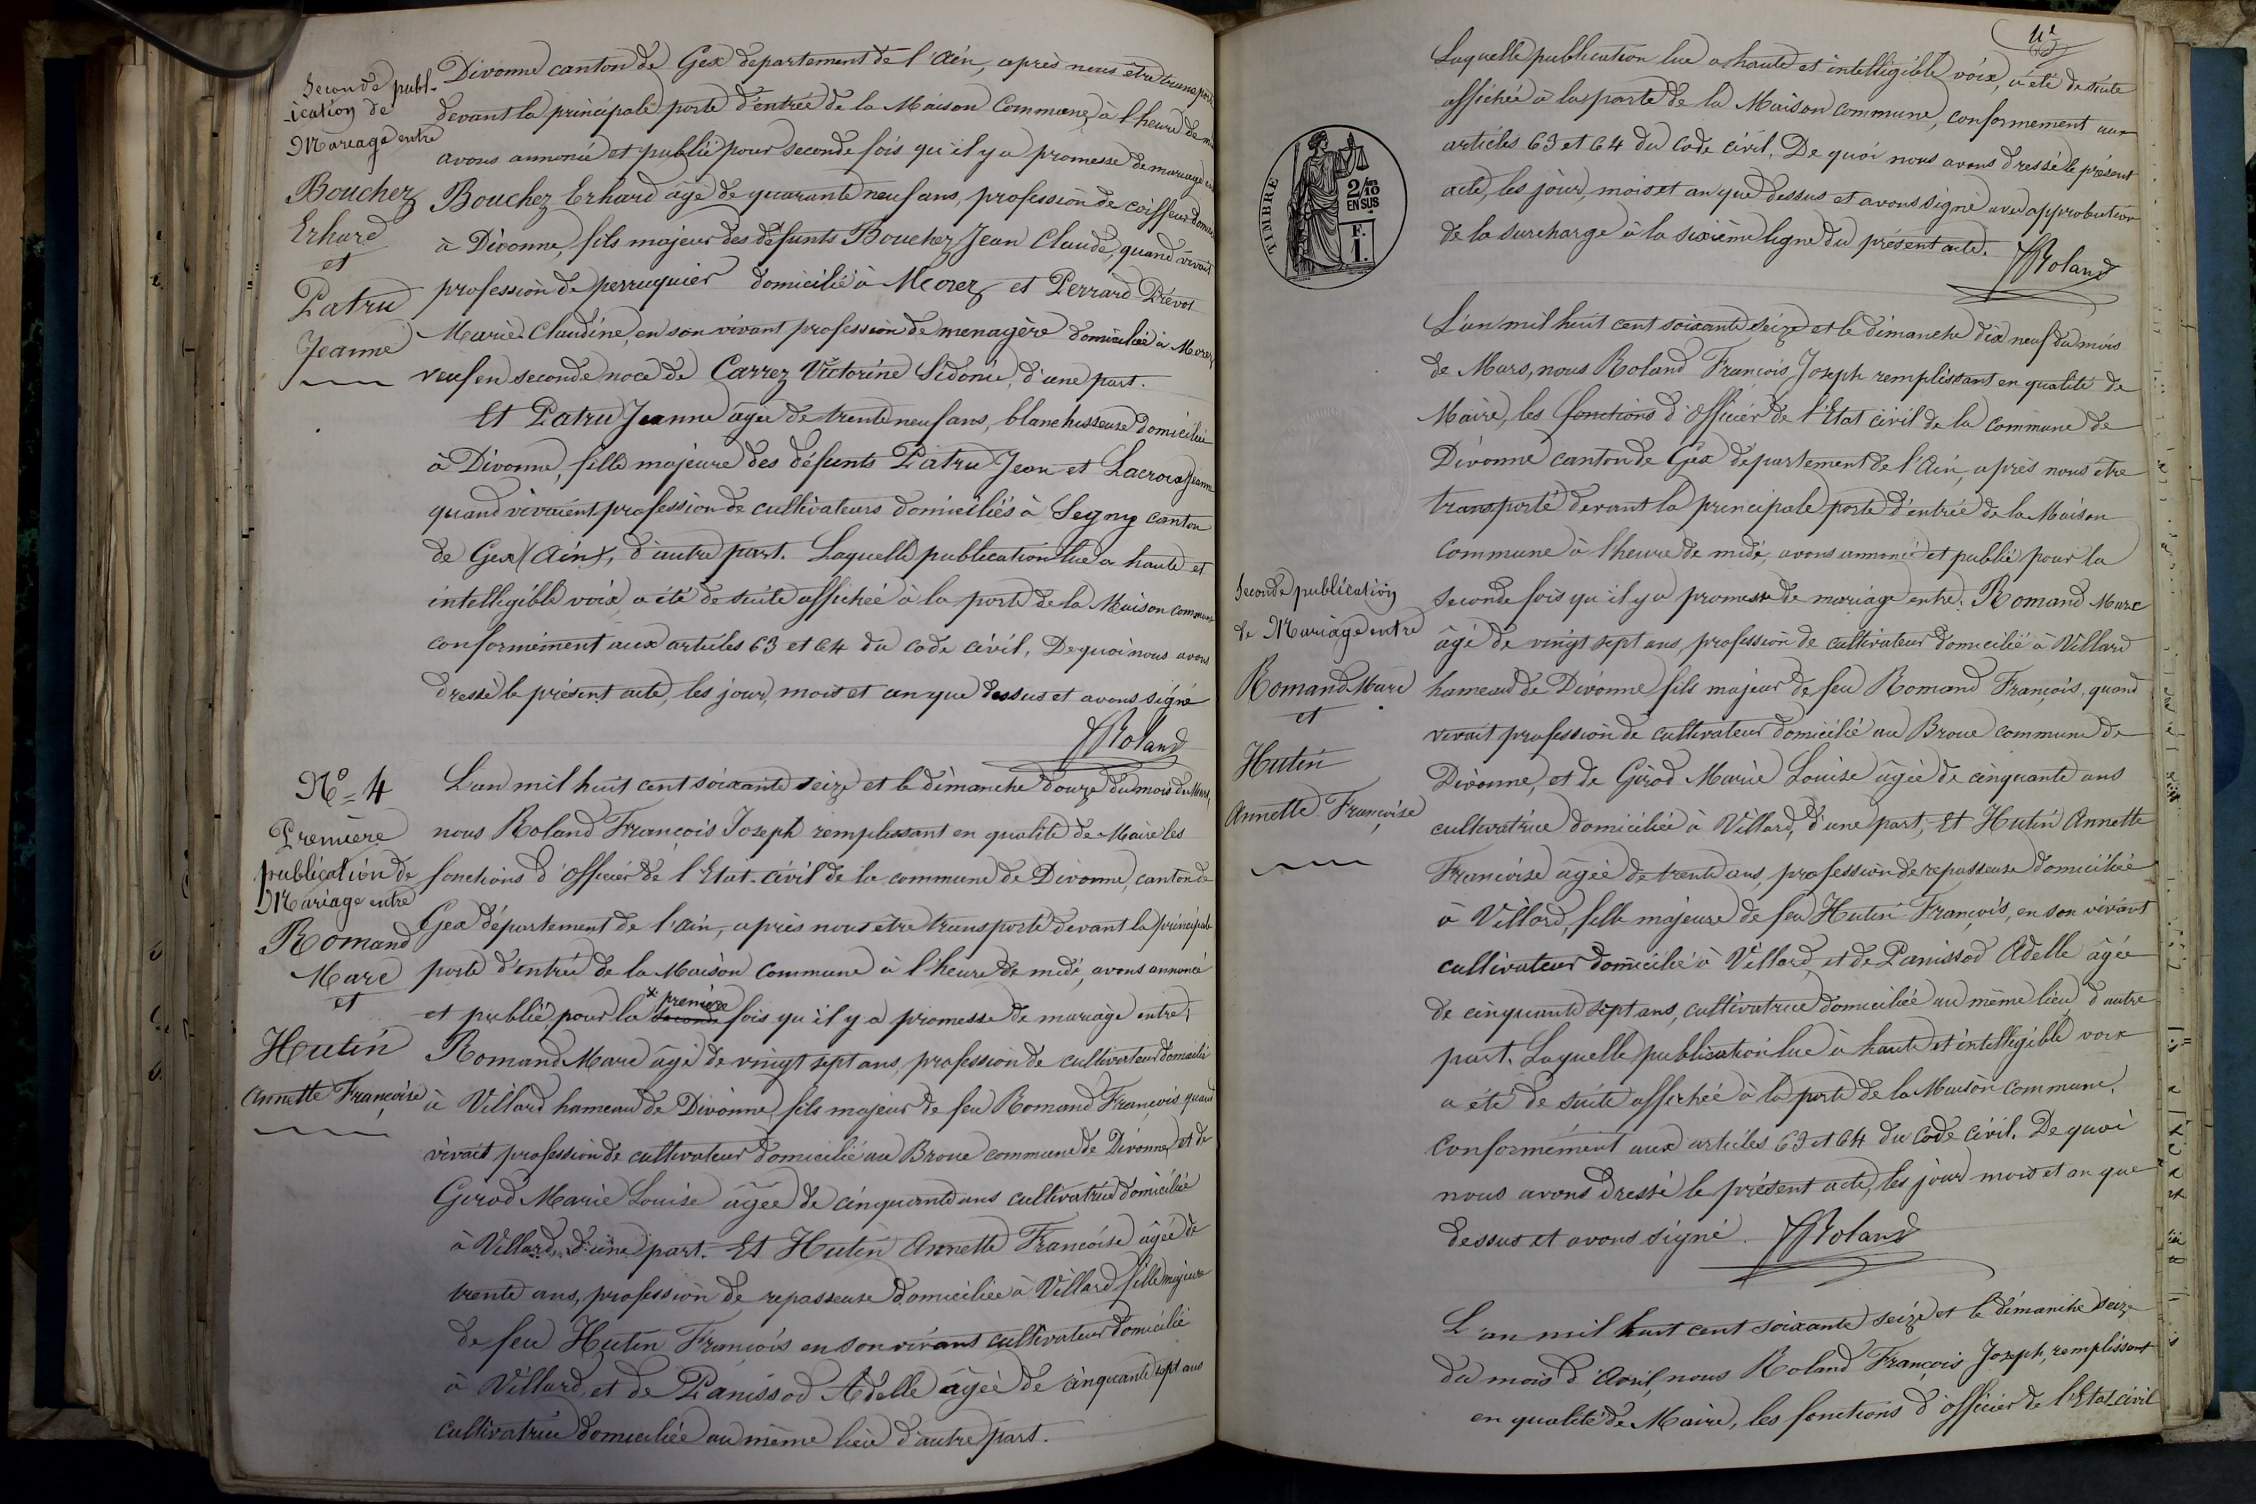 Seconde publ-
-ication de
Mariage entre
Bouchez
Erhard
et
Patru
Jeanne
Divonne canton de Gex departement de l'Ain, après nous être
devant la principale porte d'entrée de la Maison Commune, à l'heure de
avons annoncé et publié pour seconde fois qu'il y a promesse de mariage
Bouchez Erhard agé de quarante neuf ans, profession de coiffeur
à Divonne, fils majeur des défunts Bouchez Jean Claude, quand vivait
profession de perruquier domicilié à Morez et Perrard Prévot
Marie Claudine, en son vivant profession de menagère domiciliée à Morez
veuf en seconde noce de Carrez Victorine Sidonie, d'une part.
Et Patru Jeanne âgée de trente neuf ans, blanchisseuse domiciliée
à Divonne, fille majeure des défunts Patru Jean et Lacroix Jeanne
quand vivaient profession de cultivateurs domiciliés à Segny canton
de Gex (Ain), d'autre part. Laquelle publication lue a haute et
intelligible voix, a été de suite affichée à la porte de la Maison commune
conformément aux articles 63 et 64 du code civil. De quoi nous avons
dressé le présent acte, les jour, mois et an que dessus et avons signé
JRoland
N° 4
Première
publication de
Mariage entre
Romand
Marc
et
Hutin
Annette Françoise
L'an mil huit cent soixante seize et le dimanche douze du mois de Mars,
nous Roland François Joseph remplissant en qualité de Maire les
fonctions d'officier de l'Etat-civil de la commune de Divonne, canton de
Gex département de l'Ain, après nous être transporté devant la principale
porte d'entrée de la Maison Commune à l'heure de midi, avons annoncé
x première
et publié pour la seconde fois qu'il y a promesse de mariage entre:
Romand Marc âgé de vingt sept ans, profession de cultivateur domicilié
à Villard hameau de Divonne, fils majeur de feu Romand François, quand
vivait profession de cultivateur domicilié au Broue commune de Divonne, et de
Girod Marie Louise âgée de cinquante ans cultivatrice domiciliée
à Villard, d'une part. Et Hutin Annette Françoise âgée de
trente ans, profession de repasseuse domiciliée à Villard fille majeure
de feu Hutin François en son vivant cultivateur domicilié
à Villard, et de Panissod Adelle âgée de cinquante sept ans
cultivatrice domiciliée au même lieu d'autre part.
TIMBRE
2/10
EN SUS
F.
1.
Laquelle publication lue a haute et intelligible voix, a été de suite
affichée à la porte de la Maison commune, conformément aux
articles 63 et 64 du Code civil. De quoi nous avons dressé le présent
acte, les jour, mois et an que dessus et avons signé avec approbation
de la surcharge à la sixième ligne du présent acte.
JRoland
Seconde publication
de Mariage entre
Romand Marc
et
Hutin
Annette Françoise
L'an mil huit cent soixante seize et le dimanche dix neuf du mois
de Mars, nous Roland François Joseph remplissant en qualité de
Maire, les fonctions d'Officier de l'Etat civil de la commune de
Divonne canton de Gex département de l'Ain, après nous être
transporté devant la principale porte d'entrée de la Maison
commune à l'heure de midi, avons annoncé et publié pour la
seconde fois qu'il y a promesse de mariage entre: Romand Marc
âgé de vingt sept ans, profession de cultivateur domicilié à Villard
hameau de Divonne fils majeur de feu Romand François, quand
vivait profession de cultivateur domicilié au Broue commune de
Divonne, et de Girod Marie Louise âgée de cinquante ans
cultivatrice domiciliée à Villard, d'une part, Et Hutin Annette
Françoise âgée de trente ans, profession de repasseuse domiciliée
à Villard, fille majeure de feu Hutin François, en son vivant
cultivateur domicilié à Villard, et de Panissod Adelle âgée
de cinquante sept ans, cultivatrice domiciliée au même lieu, d'autre
part. Laquelle publication lue à haute et intelligible voix
a été de suite affichée à la porte de la Maison commune.
conformément aux articles 63 et 64 du Code civil. De quoi
nous avons dressé le présent acte, les jour mois et an que
dessus et avons signé. JRoland
L'an mil huit cent soixante seize et le dimanche seize
du mois d'Avril, nous Roland François Joseph, remplissant
en qualité de Maire, les fonctions d'officier de l'Etat civil